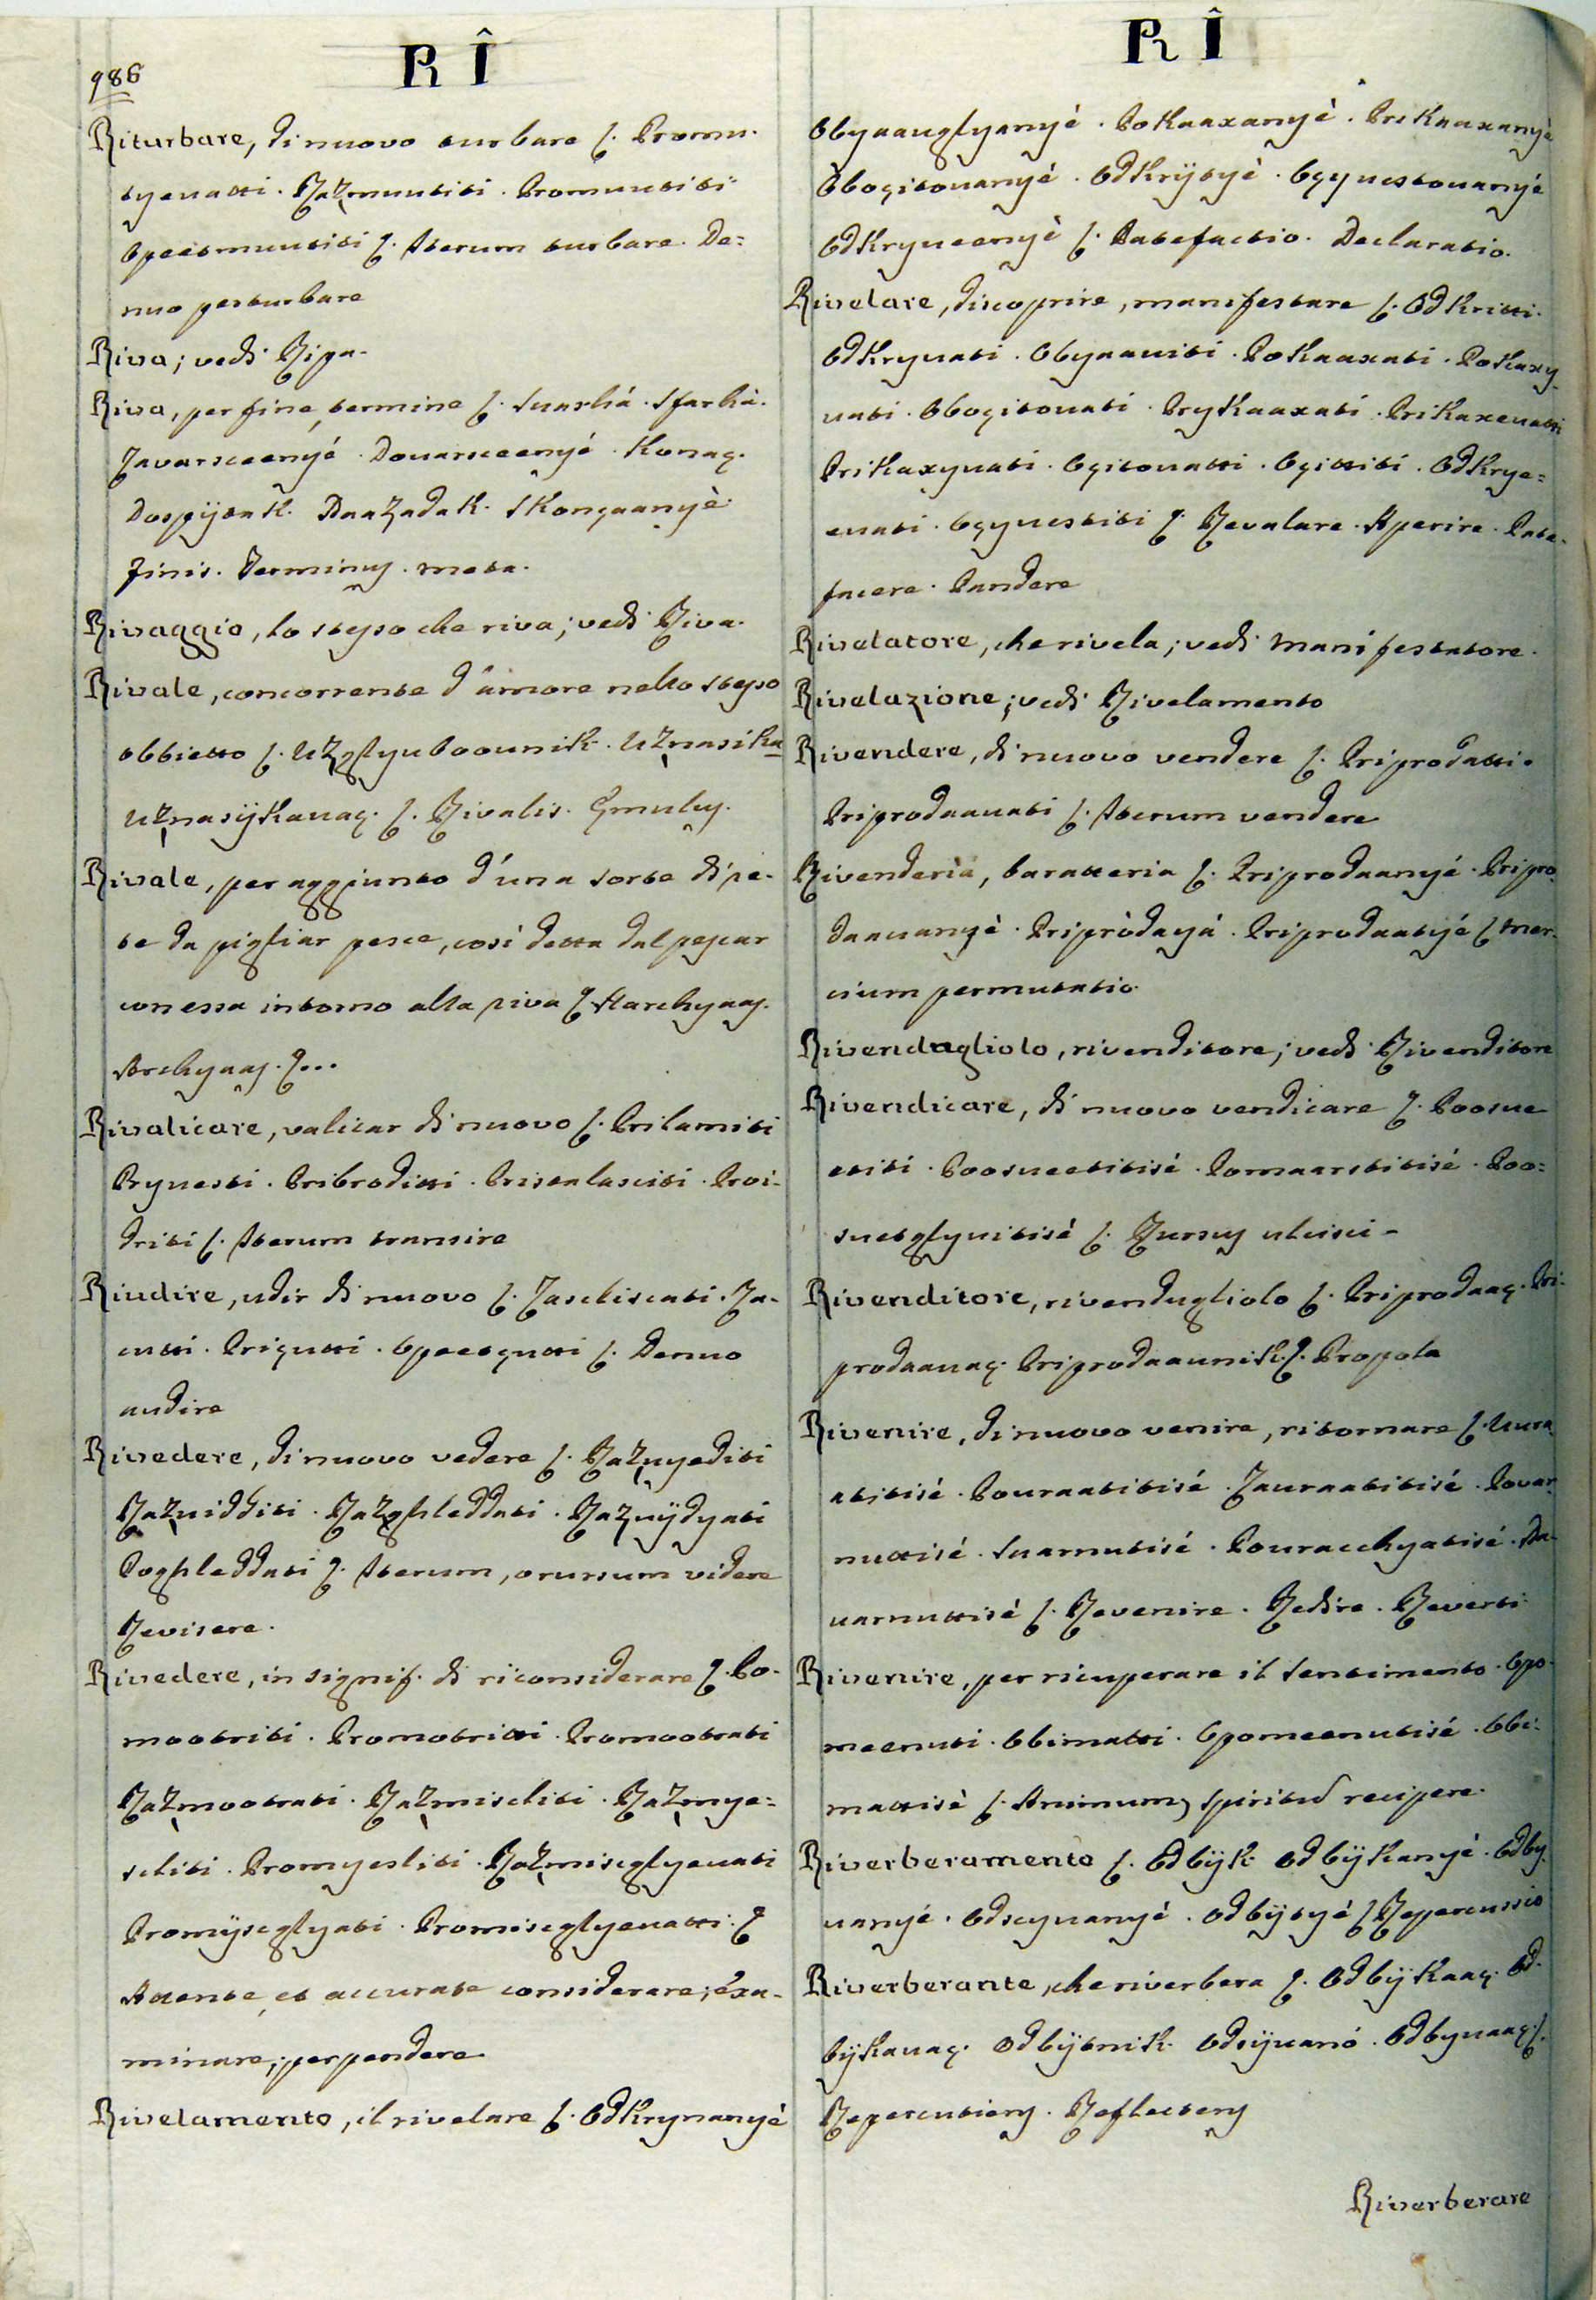 986
R Î
Riturbare, di nuovo turbare ſ. Promu-
tyevatti. Razmuutiti. Promuutiti
Opeetmuutiti ſ. Iterum turbare. De=
nuo perturbare
Riva; vedi Ripa.
Riva, per fine, termine ſ. Svarhá. Sfarhà.
Zavarsceenyé. Dovarsceenyé. Konaç.
Dospÿtak. Naazadak. Skonçaanyè.
Finis. Terminus. meta.
Rivaggio, lo stesso che riva; vedi Riva.
Rivale, concorrente d'amore nello stesso
obbietto ſ. Uzgljuboovnik. Uznasika
Uznasÿkavaç. ſ. Rivalis. Çmulus.
Rivale, per aggiunto d'una sorte di re-
te da pigliar pesce, così detta dal pescar
con essa intorno alla riva ſ. Harchyaas.
Archyaas. ſ...
Rivalicare, valicar di nuovo ſ. Prilamiti
Pryvesti. Pribroditti. Pristalasciti. Proi-
driti ſ. Iterum transire
Riudire, udir di nuovo ſ. Zascliscati. Za-
cutti. Priçutti. Opeetçutti ſ. Denuo
audire
Rivedere, di nuovo vedere ſ. Razvyediti
Razvidditi. Razghleddati. Razvÿdyati
Poghleddati ſ. Iterum, o rursum videre
Revisere.
Rivedere, in signif. di riconsiderare ſ. Po-
mootriti. Promotritti. Promootrati
Razmootrati. Razmisliti. Razmye=
sliti. Promyesliti. Razmisegljevati
Promÿsegljati. Promisegljevatti. ſ
Attente, et accurate considerare; exa-
minare; perpendere
Rivelamento, il rivelare ſ. Odkryvanyè
R Î
Obyaavgljanyé. Pokaaxanyé. Prikaaxanyè
Obogitovanyé. Odkrÿtyé. Oçyvestovanyé
Odkryveenyé ſ. Patefactio. Declaratio.
Rivelare, discoprire, manifestare ſ. Odkritti.
Odkryvati. Obyaaviti. Pokaaxati. Pokaxy-
vati. Obogitovati. Prykaaxati. Prikaxevatti
Prikaxyvati. Ogitovatti. Ogittiti. Odkrye=
evati. Oçyvestiti ſ. Revalare. Aperire. Pate-
facere. Pandere
Rivelatore, che rivela; vedi manifestatore.
Rivelazione; vedi Rivelamento
Rivendere, di nuovo vendere ſ. Priprodatti.
Priprodaavati ſ. Iterum vendere
Rivenderia, baratteria ſ. Priprodaanyé. Pripro-
daavanyé. Pripròdayá. Priprodaatyé ſ mer-
cium permutatio.
Rivendagliolo, rivenditore; vedi Rivenditore
Rivendicare, di nuovo vendicare ſ. Poosve
etiti. Poosveetitisé. Pomaarstitisé. Poo=
svetgljvitisè ſ. Rursus ulcisci-
Rivenditore, rivendugliolo ſ. Priprodaaç. Pri-
prodaavaç. Priprodaavnik. ſ. Propola
Rivenire, di nuovo venire, ritornare ſ. Uvra
atitisé. Povraatitisé. Zavraatitisé. Povar
nuttisé. Svarnutisé. Povracchyatisé. Na-
varnuttisé ſ. Revenire. Redire. Reverti
Rivenire, per ricuperare il sentimento. Opo-
meenuti. Obimatti. Opomeenutisé. Obi-
mattisè ſ. Animum, spiritus recipere.
Riverberamento ſ. Odbÿk. Odbÿkanyé. Odby-
vanyé. Odscyvanyé. Odbÿtyé ſ Repercussio
Riverberante, che riverbera ſ. Odbÿkaaç. Od-
bÿkavaç. Odbÿtnik. Odsÿvanó. Odbyvaaç. ſ.
Repercutiens. Reflectens
Riverberare